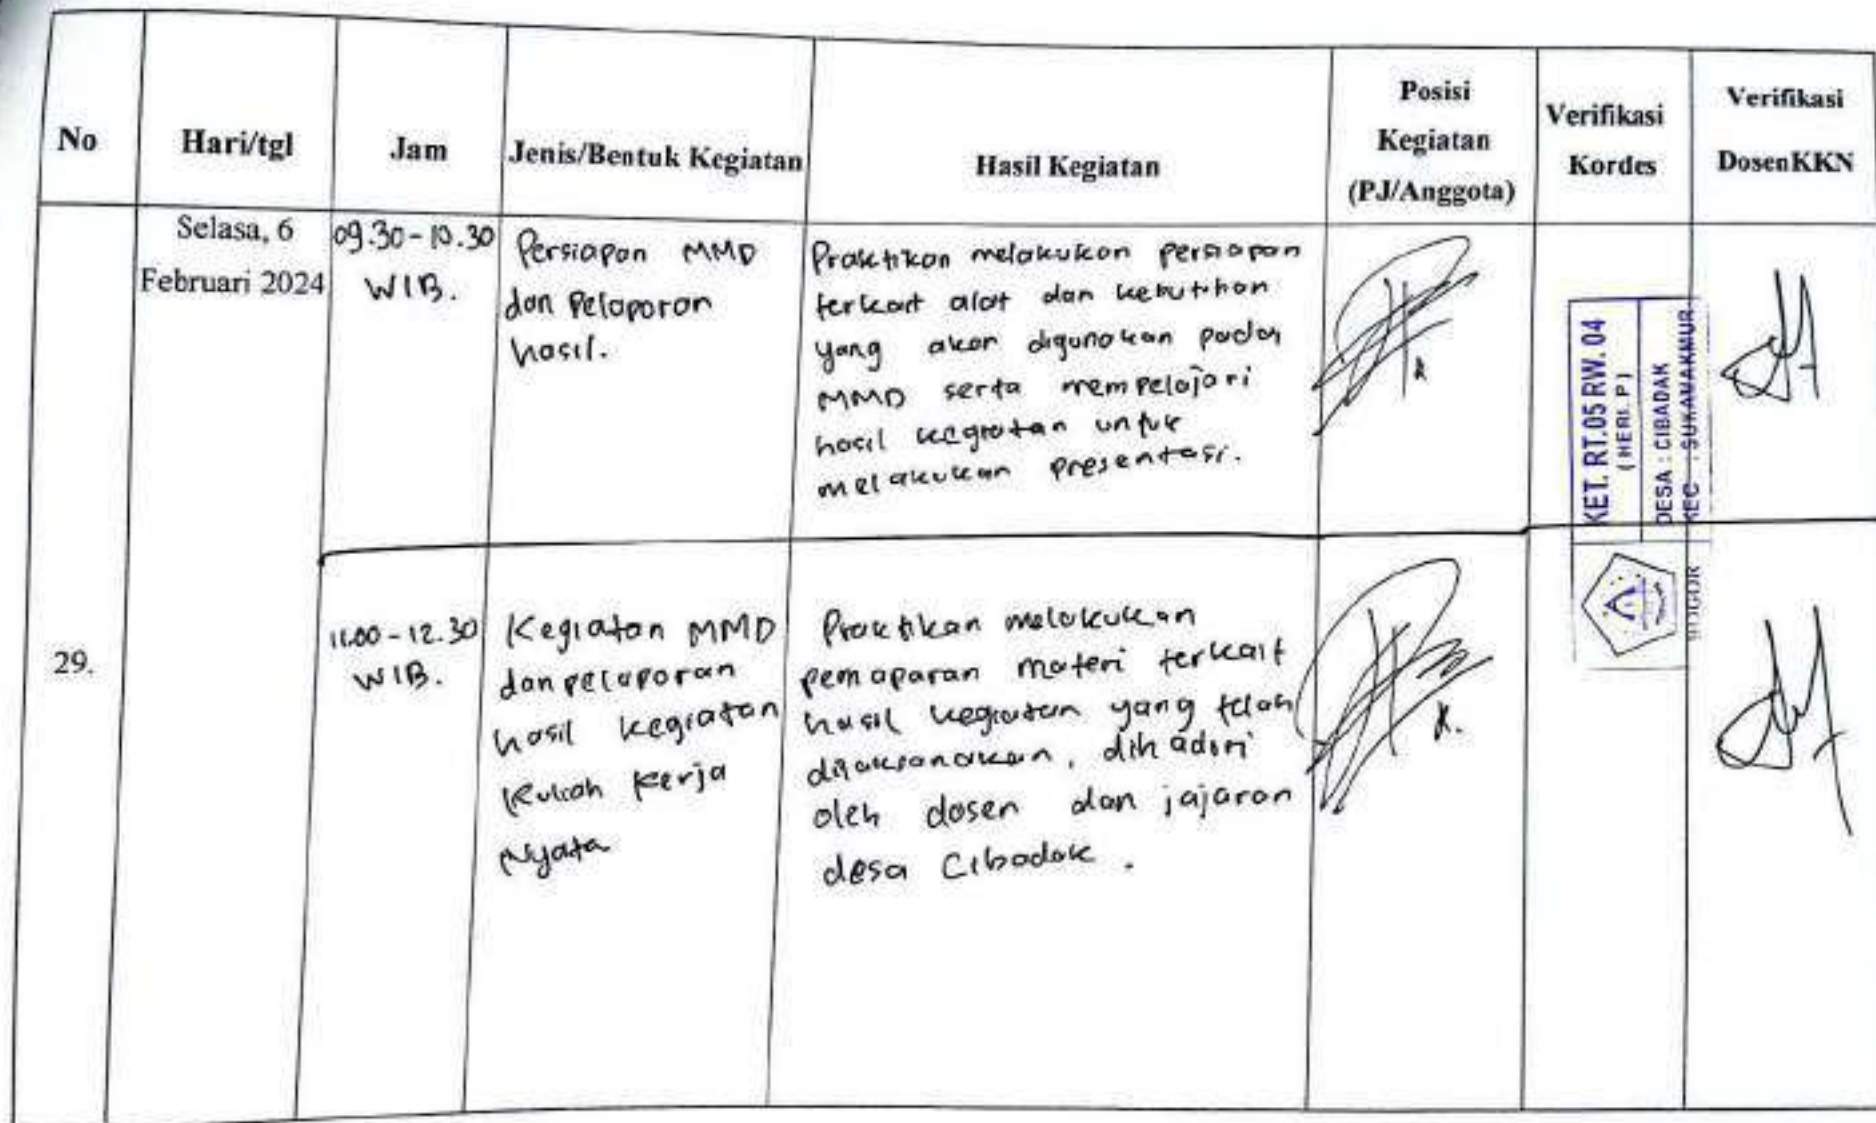 No
Hari/tgl
Jam
Jenis/Bentuk Kegiatan
Hasil Kegiatan
Posisi
Kegiatan
(PJ/Anggota)
Verifikasi
Kordes
Verifikasi
DosenKKN
29.
Selasa, 6
Februari 2024
09.30-10.30
WIB.
Persiapan MMD
dan Pelaporan
hasil.
Praktikan melakukan persiapan
terkait alat dan kebutuhan
yang akan digunakan pada
MMD serta mempelajari
hasil kegiatan untuk
melakukan presentasi.
KET. RT.05 RW.04
(HERI. P)
DESA : CIBADAK
KEC : SUKAMAKMUR
BOGOR
11.00-12.30
WIB.
Kegiatan MMD
dan pelaporan
hasil kegiatan
Kuliah Kerja
Nyata
Praktikan melakukan
pemaparan materi terkait
hasil kegiatan yang telah
dilaksanakan, dihadiri
oleh dosen dan jajaran
desa Cibadak.